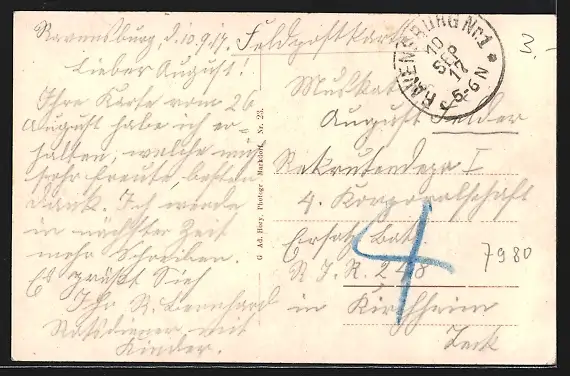 Ravensburg, d. 10.9.17.
Lieber August!
Ihre Karte vom 26
August habe ich er-
halten, welche mich
sehr freute, besten
Dank. Ich werde
in nächster Zeit
mehr Schreiben.
Es grüßt Sich
Ihr R. Bernhard
Ratsdiener mit
Kinder.
G Ad. Hoey, Photogr Markdorf. Nr. 23.
Feldpostkarte
RAVENSBURG Nr.1
10
SEP
17
5-6N
3.-
Musketier
August Felder
Rekrutendepo I
4. Korporalschaft
Ersatz Bat.
R. J. R. 248
in Kirchheim
Teck
4
7980